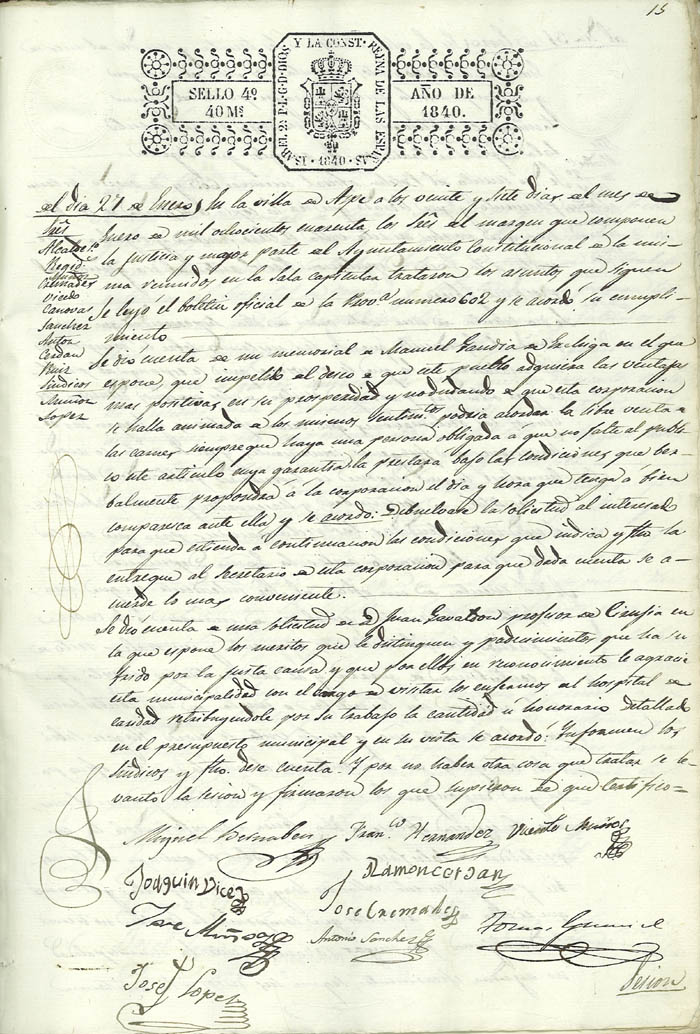 15
ISABEL 2ª P. L. G. D. DIOS Y LA CONST. REINA DE LAS ESPAÑAS
1840
SELLO 4º
40 Ms
AÑO DE
1840.
el dia 27 de Enero, En la villa de Aspe a los veinte y siete dias del mes de
Enero de mil ochocientos cuarenta, los Sres al margen que componen
la Justicia y mayor parte del Ayuntamiento Constitucional de la mis-
ma reunidos en la Sala capitular trataron los asuntos que siguen
Se leyó el boletin oficial de la Provª numero 602 y se acordó su cumpli-
miento
Sres
Alcalde 1º
Regidrs
Muñoz
Cremades
Vicedo
Canovas
Sanchez
Autor
Cerdan
Ruiz
Sindicos
Muñoz
Lopez
Se dio cuenta de un memorial de Manuel Gandia de Lechiga en el que
espone, que impelido del deseo de que este pueblo adquiera las ventajas
mas positivas en su prosperidad y no dudando de que esta corporacion
se halla animada de los mismos sentimtos podria acordar la libre venta de
las carnes siempre que haya una persona obligada a que no falte al publi-
co este articulo cuya garantia la prestará bajo las condiciones que ber-
balmente propondrá a la corporacion el dia y hora que tenga a bien
comparesca ante ella y se acordo: Debuelvase la solicitud al interesado
para que estienda a continuacion las condiciones que indica y fho lo
entregue al Secretario de esta corporacion para que dada cuenta se a-
cuerde lo mas conveniente.
Se dió cuenta de una solicitud de D. Juan Gavaldon profesor de Cirugia en
la que espone los meritos que le distinguen y padecimientos que ha su-
frido por la justa causa y que por ellos en reconocimiento le agracie
esta municipalidad con el cargo de visitar los enfermos del hospital de
caridad retribuyendole por su trabajo la cantidad ú honorario detallado
en el presupuesto municipal y en su vista se acordó: Informen los
Sindicos y fho. dese cuenta. Y por no haber otra cosa que tratar se le-
vantó la sesion y firmaron los que supieron de que certifico=
Miguel Bernabeu
Franco Hernandez
Vicente Muñoz
Joaquin Vicedo
Ramon Cerdan
Jose Muñoz
Jose Cremades
Antonio Sanchez
Jose Lopez
Sesion